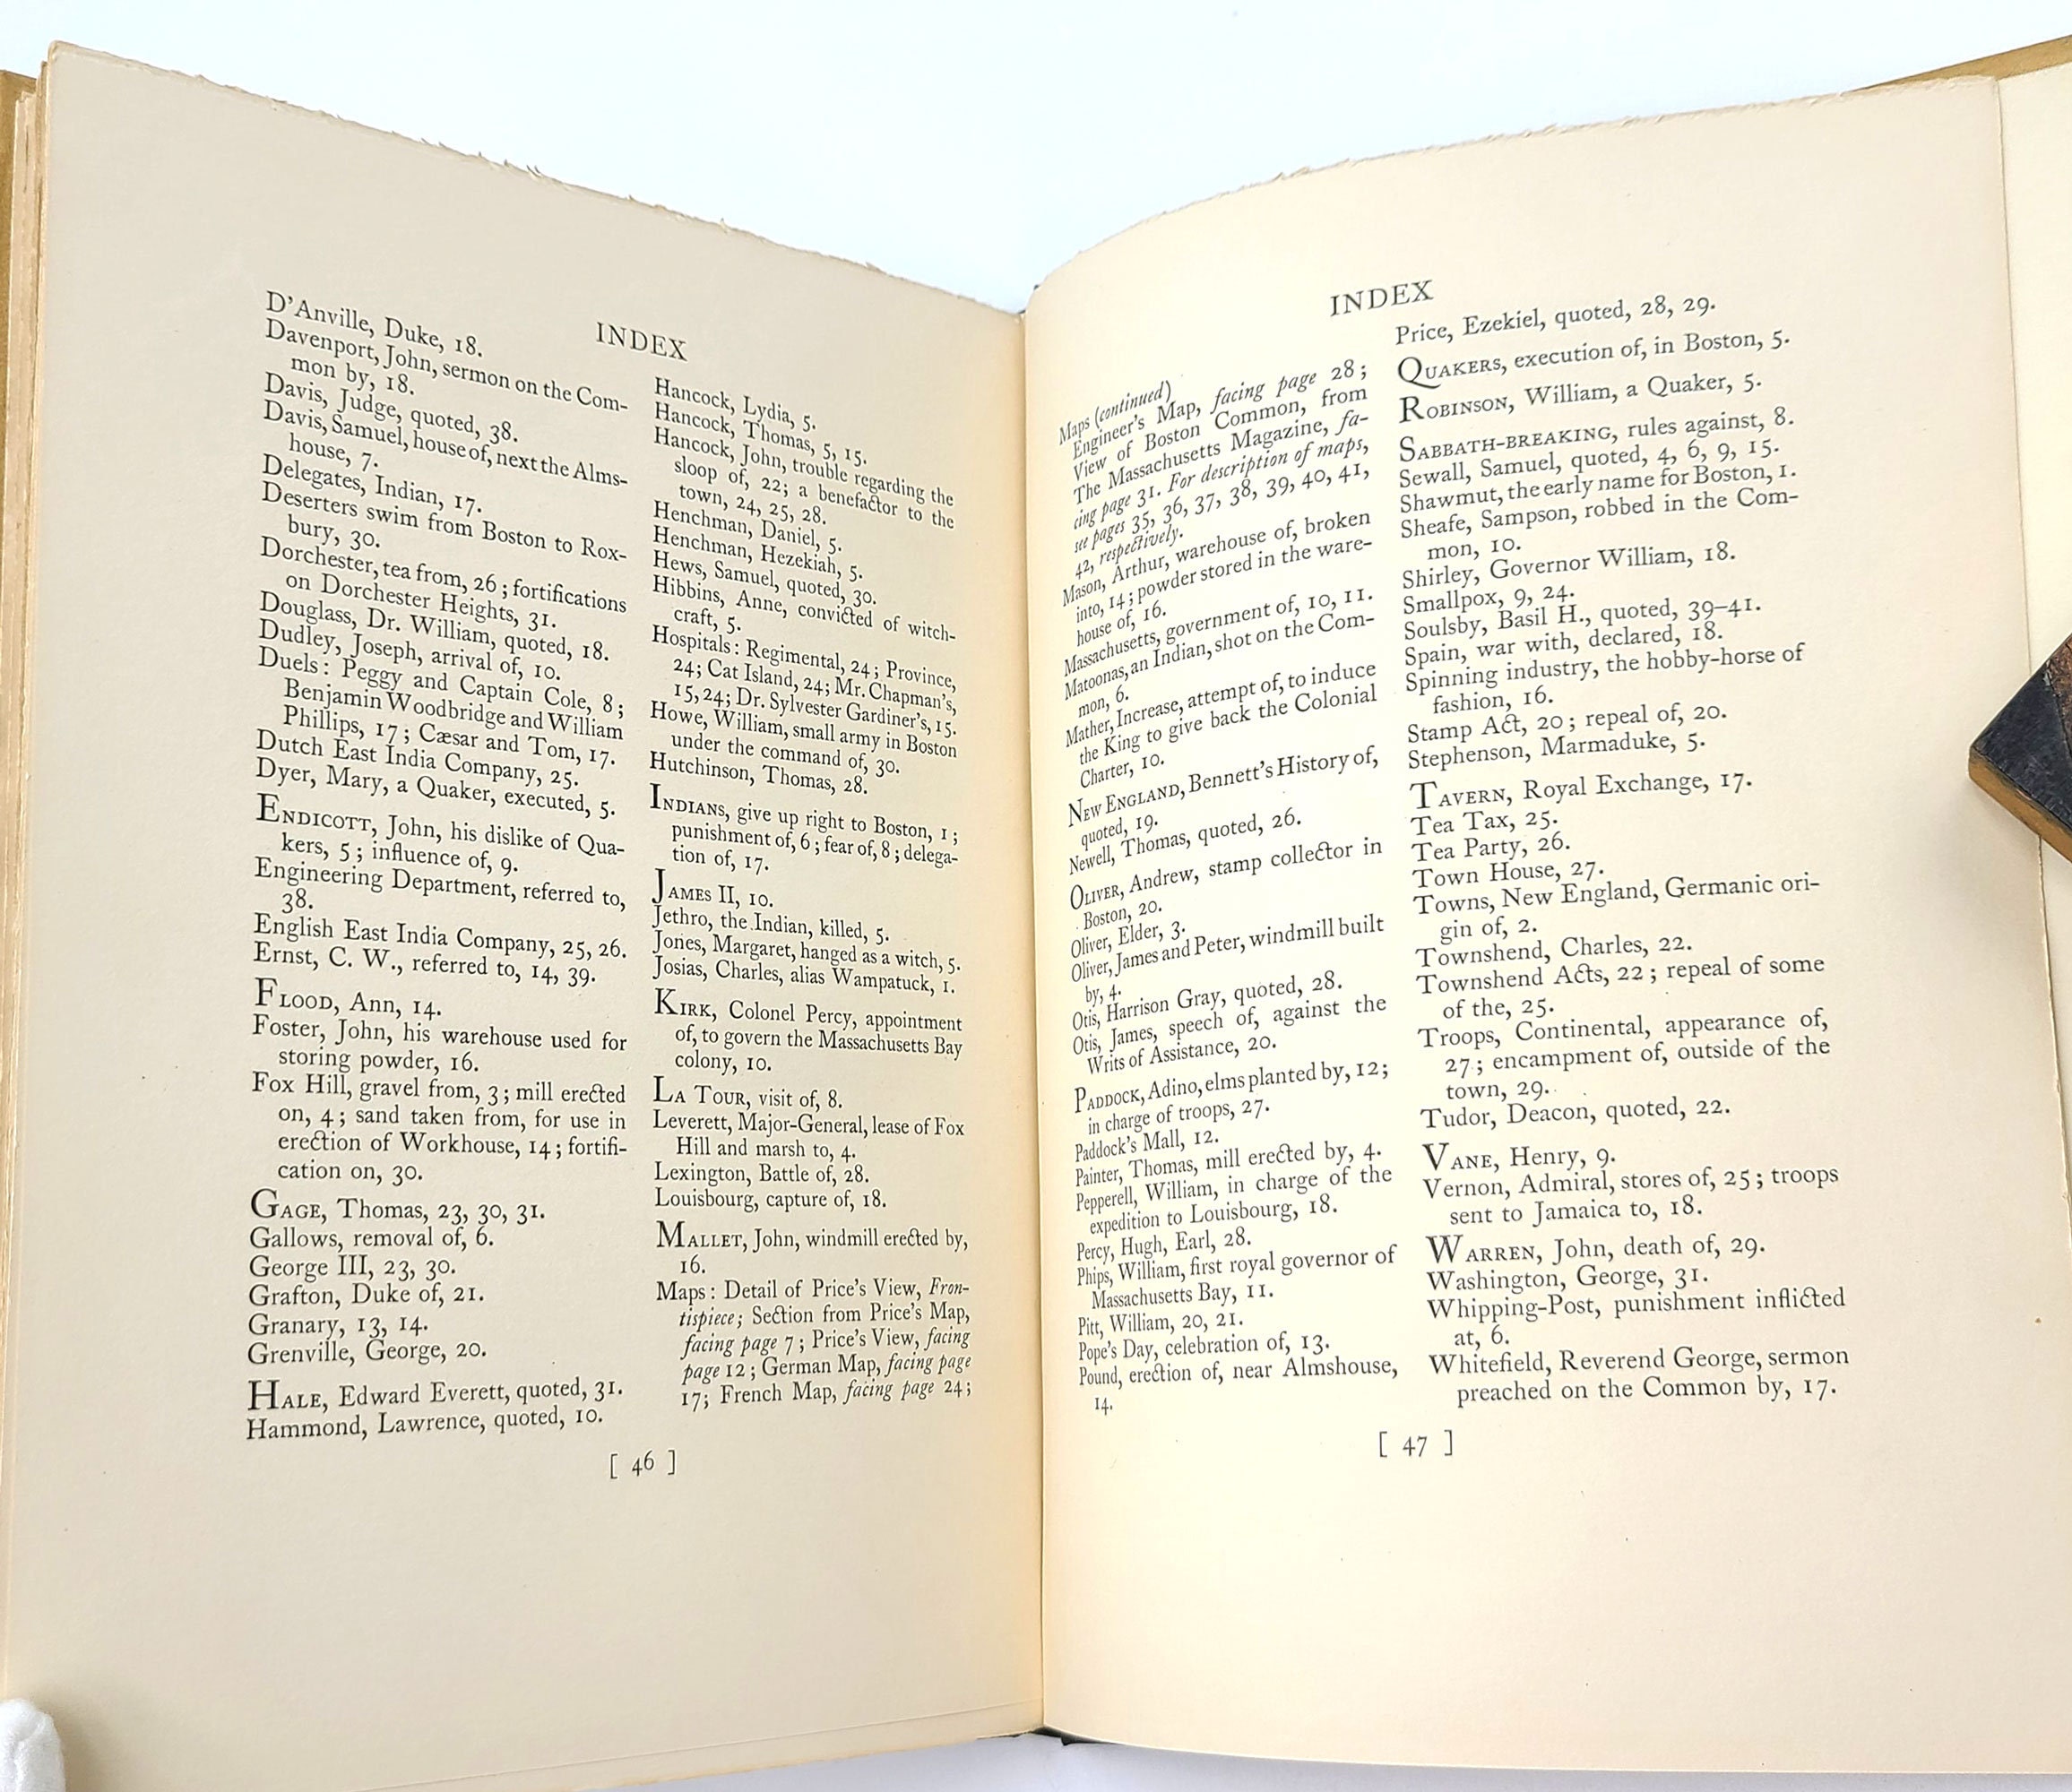 INDEX
D'Anville, Duke, 18.
Davenport, John, sermon on the Com-
mon by, 18.
Davis, Judge, quoted, 38.
Davis, Samuel, house of, next the Alms-
house, 7.
Delegates, Indian, 17.
Deserters swim from Boston to Rox-
bury, 30.
Dorchester, tea from, 26; fortifications
on Dorchester Heights, 31.
Douglass, Dr. William, quoted, 18.
Dudley, Joseph, arrival of, 10.
Duels: Peggy and Captain Cole, 8;
Benjamin Woodbridge and William
Phillips, 17; Cæsar and Tom, 17.
Dutch East India Company, 25.
Dyer, Mary, a Quaker, executed, 5.
ENDICOTT, John, his dislike of Qua-
kers, 5; influence of, 9.
Engineering Department, referred to,
38.
English East India Company, 25, 26.
Ernst, C. W., referred to, 14, 39.
FLOOD, Ann, 14.
Foster, John, his warehouse used for
storing powder, 16.
Fox Hill, gravel from, 3; mill erected
on, 4; sand taken from, for use in
erection of Workhouse, 14; fortifi-
cation on, 30.
GAGE, Thomas, 23, 30, 31.
Gallows, removal of, 6.
George III, 23, 30.
Grafton, Duke of, 21.
Granary, 13, 14.
Grenville, George, 20.
HALE, Edward Everett, quoted, 31.
Hammond, Lawrence, quoted, 10.
Hancock, Lydia, 5.
Hancock, Thomas, 5, 15.
Hancock, John, trouble regarding the
sloop of, 22; a benefactor to the
town, 24, 25, 28.
Henchman, Daniel, 5.
Henchman, Hezekiah, 5.
Hews, Samuel, quoted, 30.
Hibbins, Anne, convicted of witch-
craft, 5.
Hospitals: Regimental, 24; Province,
24; Cat Island, 24; Mr. Chapman's,
15, 24; Dr. Sylvester Gardiner's, 15.
Howe, William, small army in Boston
under the command of, 30.
Hutchinson, Thomas, 28.
INDIANS, give up right to Boston, 1;
punishment of, 6; fear of, 8; delega-
tion of, 17.
JAMES II, 10.
Jethro, the Indian, killed, 5.
Jones, Margaret, hanged as a witch, 5.
Josias, Charles, alias Wampatuck, 1.
KIRK, Colonel Percy, appointment
of, to govern the Massachusetts Bay
colony, 10.
LA TOUR, visit of, 8.
Leverett, Major-General, lease of Fox
Hill and marsh to, 4.
Lexington, Battle of, 28.
Louisbourg, capture of, 18.
MALLET, John, windmill erected by,
16.
Maps: Detail of Price's View, Fron-
tispiece; Section from Price's Map,
facing page 7; Price's View, facing
page 12; German Map, facing page
17; French Map, facing page 24;
[ 46 ]
INDEX
Maps (continued)
Engineer's Map, facing page 28;
View of Boston Common, from
The Massachusetts Magazine, fa-
cing page 31. For description of maps,
see pages 35, 36, 37, 38, 39, 40, 41,
42, respectively.
Mason, Arthur, warehouse of, broken
into, 14; powder stored in the ware-
house of, 16.
Massachusetts, government of, 10, 11.
Matoonas, an Indian, shot on the Com-
mon, 6.
Mather, Increase, attempt of, to induce
the King to give back the Colonial
Charter, 10.
NEW ENGLAND, Bennett's History of,
quoted, 19.
Newell, Thomas, quoted, 26.
OLIVER, Andrew, stamp collector in
Boston, 20.
Oliver, Elder, 3.
Oliver, James and Peter, windmill built
by, 4.
Otis, Harrison Gray, quoted, 28.
Otis, James, speech of, against the
Writs of Assistance, 20.
PADDOCK, Adino, elms planted by, 12;
in charge of troops, 27.
Paddock's Mall, 12.
Painter, Thomas, mill erected by, 4.
Pepperell, William, in charge of the
expedition to Louisbourg, 18.
Percy, Hugh, Earl, 28.
Phips, William, first royal governor of
Massachusetts Bay, 11.
Pitt, William, 20, 21.
Pope's Day, celebration of, 13.
Pound, erection of, near Almshouse,
14.
Price, Ezekiel, quoted, 28, 29.
QUAKERS, execution of, in Boston, 5.
ROBINSON, William, a Quaker, 5.
SABBATH-BREAKING, rules against, 8.
Sewall, Samuel, quoted, 4, 6, 9, 15.
Shawmut, the early name for Boston, 1.
Sheafe, Sampson, robbed in the Com-
mon, 10.
Shirley, Governor William, 18.
Smallpox, 9, 24.
Soulsby, Basil H., quoted, 39–41.
Spain, war with, declared, 18.
Spinning industry, the hobby-horse of
fashion, 16.
Stamp Act, 20; repeal of, 20.
Stephenson, Marmaduke, 5.
TAVERN, Royal Exchange, 17.
Tea Tax, 25.
Tea Party, 26.
Town House, 27.
Towns, New England, Germanic ori-
gin of, 2.
Townshend, Charles, 22.
Townshend Acts, 22; repeal of some
of the, 25.
Troops, Continental, appearance of,
27; encampment of, outside of the
town, 29.
Tudor, Deacon, quoted, 22.
VANE, Henry, 9.
Vernon, Admiral, stores of, 25; troops
sent to Jamaica to, 18.
WARREN, John, death of, 29.
Washington, George, 31.
Whipping-Post, punishment inflicted
at, 6.
Whitefield, Reverend George, sermon
preached on the Common by, 17.
[ 47 ]